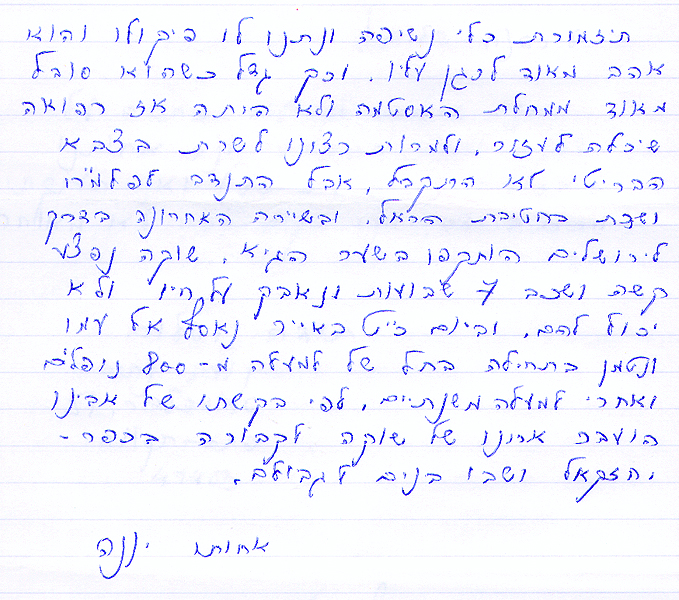 תיזמורת כלי נשיפה ונתנו לו פיקולו והוא
אהב מאוד לנגן עליו. וכך גדל כשהוא סובל
מאוד ממחלת האסטמה ולא היתה אז רפואה
שיכלה לעזור. ולמרות רצונו לשרת בצבא
הבריטי לא התקבל, אבל התנדב לפלמ"ח
ושרת בחטיבת הראל. ובשיירה האחרונה בדרך
לירושלים הותקפו בשער הגיא. שוקה נפצע
קשה ושכב 7 שבועות ונאבק על חייו ולא
יכול להם. וביום כ"ט באייר נאסף אל עמו
ונטמן בתחילה בהל של למעלה מ-800 נופלים
ואחרי למעלה משנתיים, לפי בקשתו של אבינו
הועבר ארונו של שוקה לקבורה בכפר-
יחזקאל ושבו בנים לגבולם.
אחותו יננה